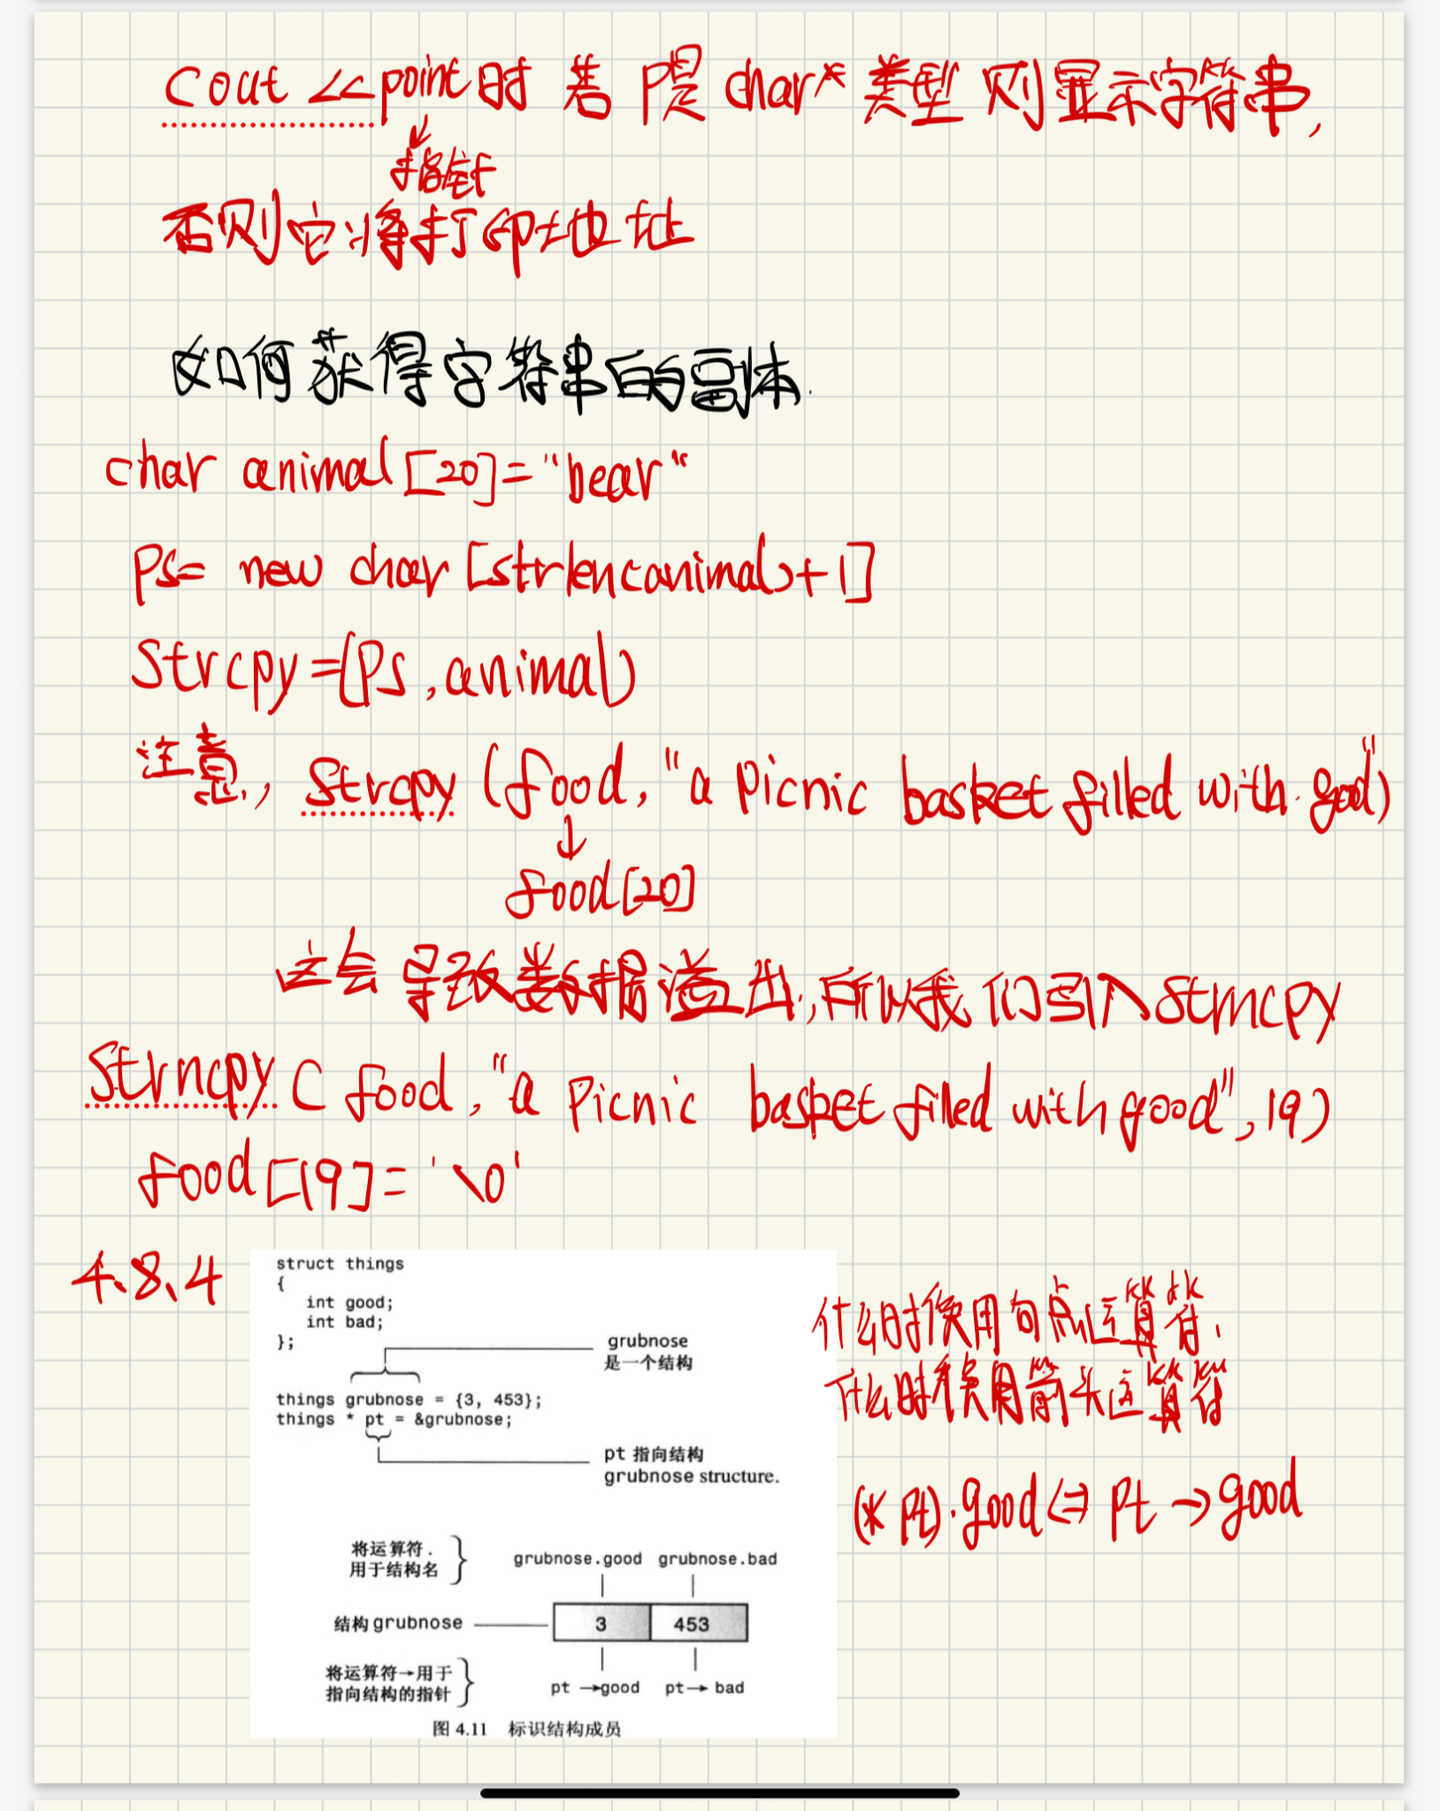 cout <<point时 若 P是 char* 类型 则显示字符串,
指针
否则它将打印地址
如何获得字符串的副本.
char animal[20]="bear"
Ps= new char [strlen(animal)+1]
Strcpy=(Ps,animal)
注意, Strcpy (food, "a Picnic basket filled with good")
food[20]
这会 导致数据溢出,所以我们引入strncpy
Strncpy ( food, "a Picnic basket filled with good", 19)
food[19]= '\0'
4.8.4
struct things
{
int good;
int bad;
};
grubnose
是一个结构
things grubnose = {3, 453};
things * pt = &grubnose;
pt 指向结构
grubnose structure.
将运算符 .
用于结构名
grubnose.good grubnose.bad
结构 grubnose
3 453
将运算符→用于
指向结构的指针
pt →good pt→ bad
图 4.11 标识结构成员
什么时候用句点运算符,
什么时候使用箭头运算符
(* Pt).good⇔Pt →good